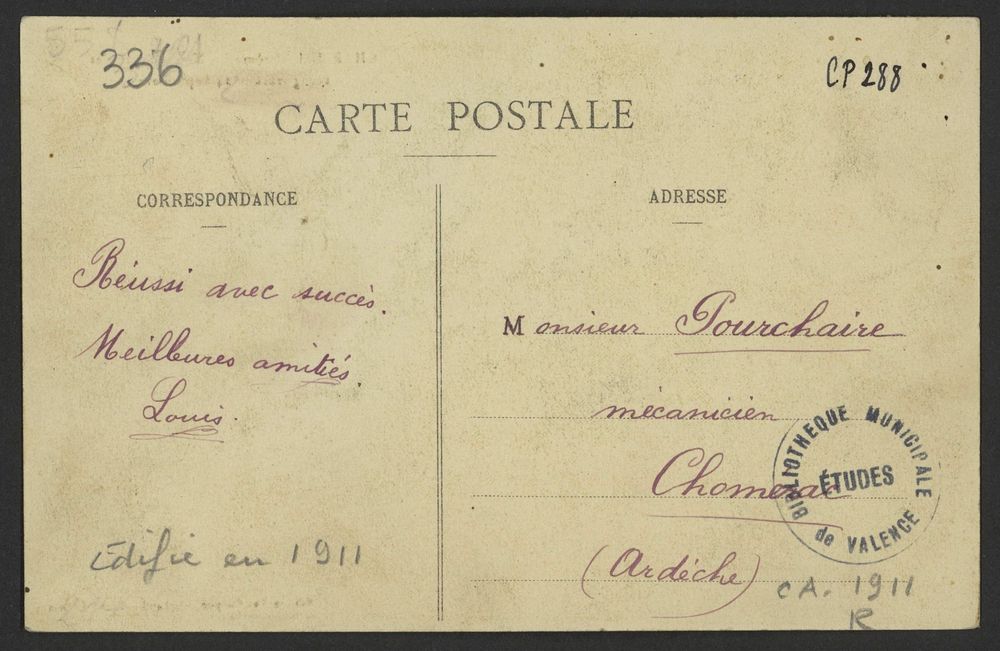 336
CP 288
CARTE POSTALE
CORRESPONDANCE
Réussi avec succès.
Meilleures amitiés.
Louis.
Edifié en 1911
ADRESSE
Monsieur Pourchaire
mécanicien
Chomérac
(Ardèche)
BIBLIOTHEQUE MUNICIPALE
ÉTUDES
de VALENCE
CA. 1911
R